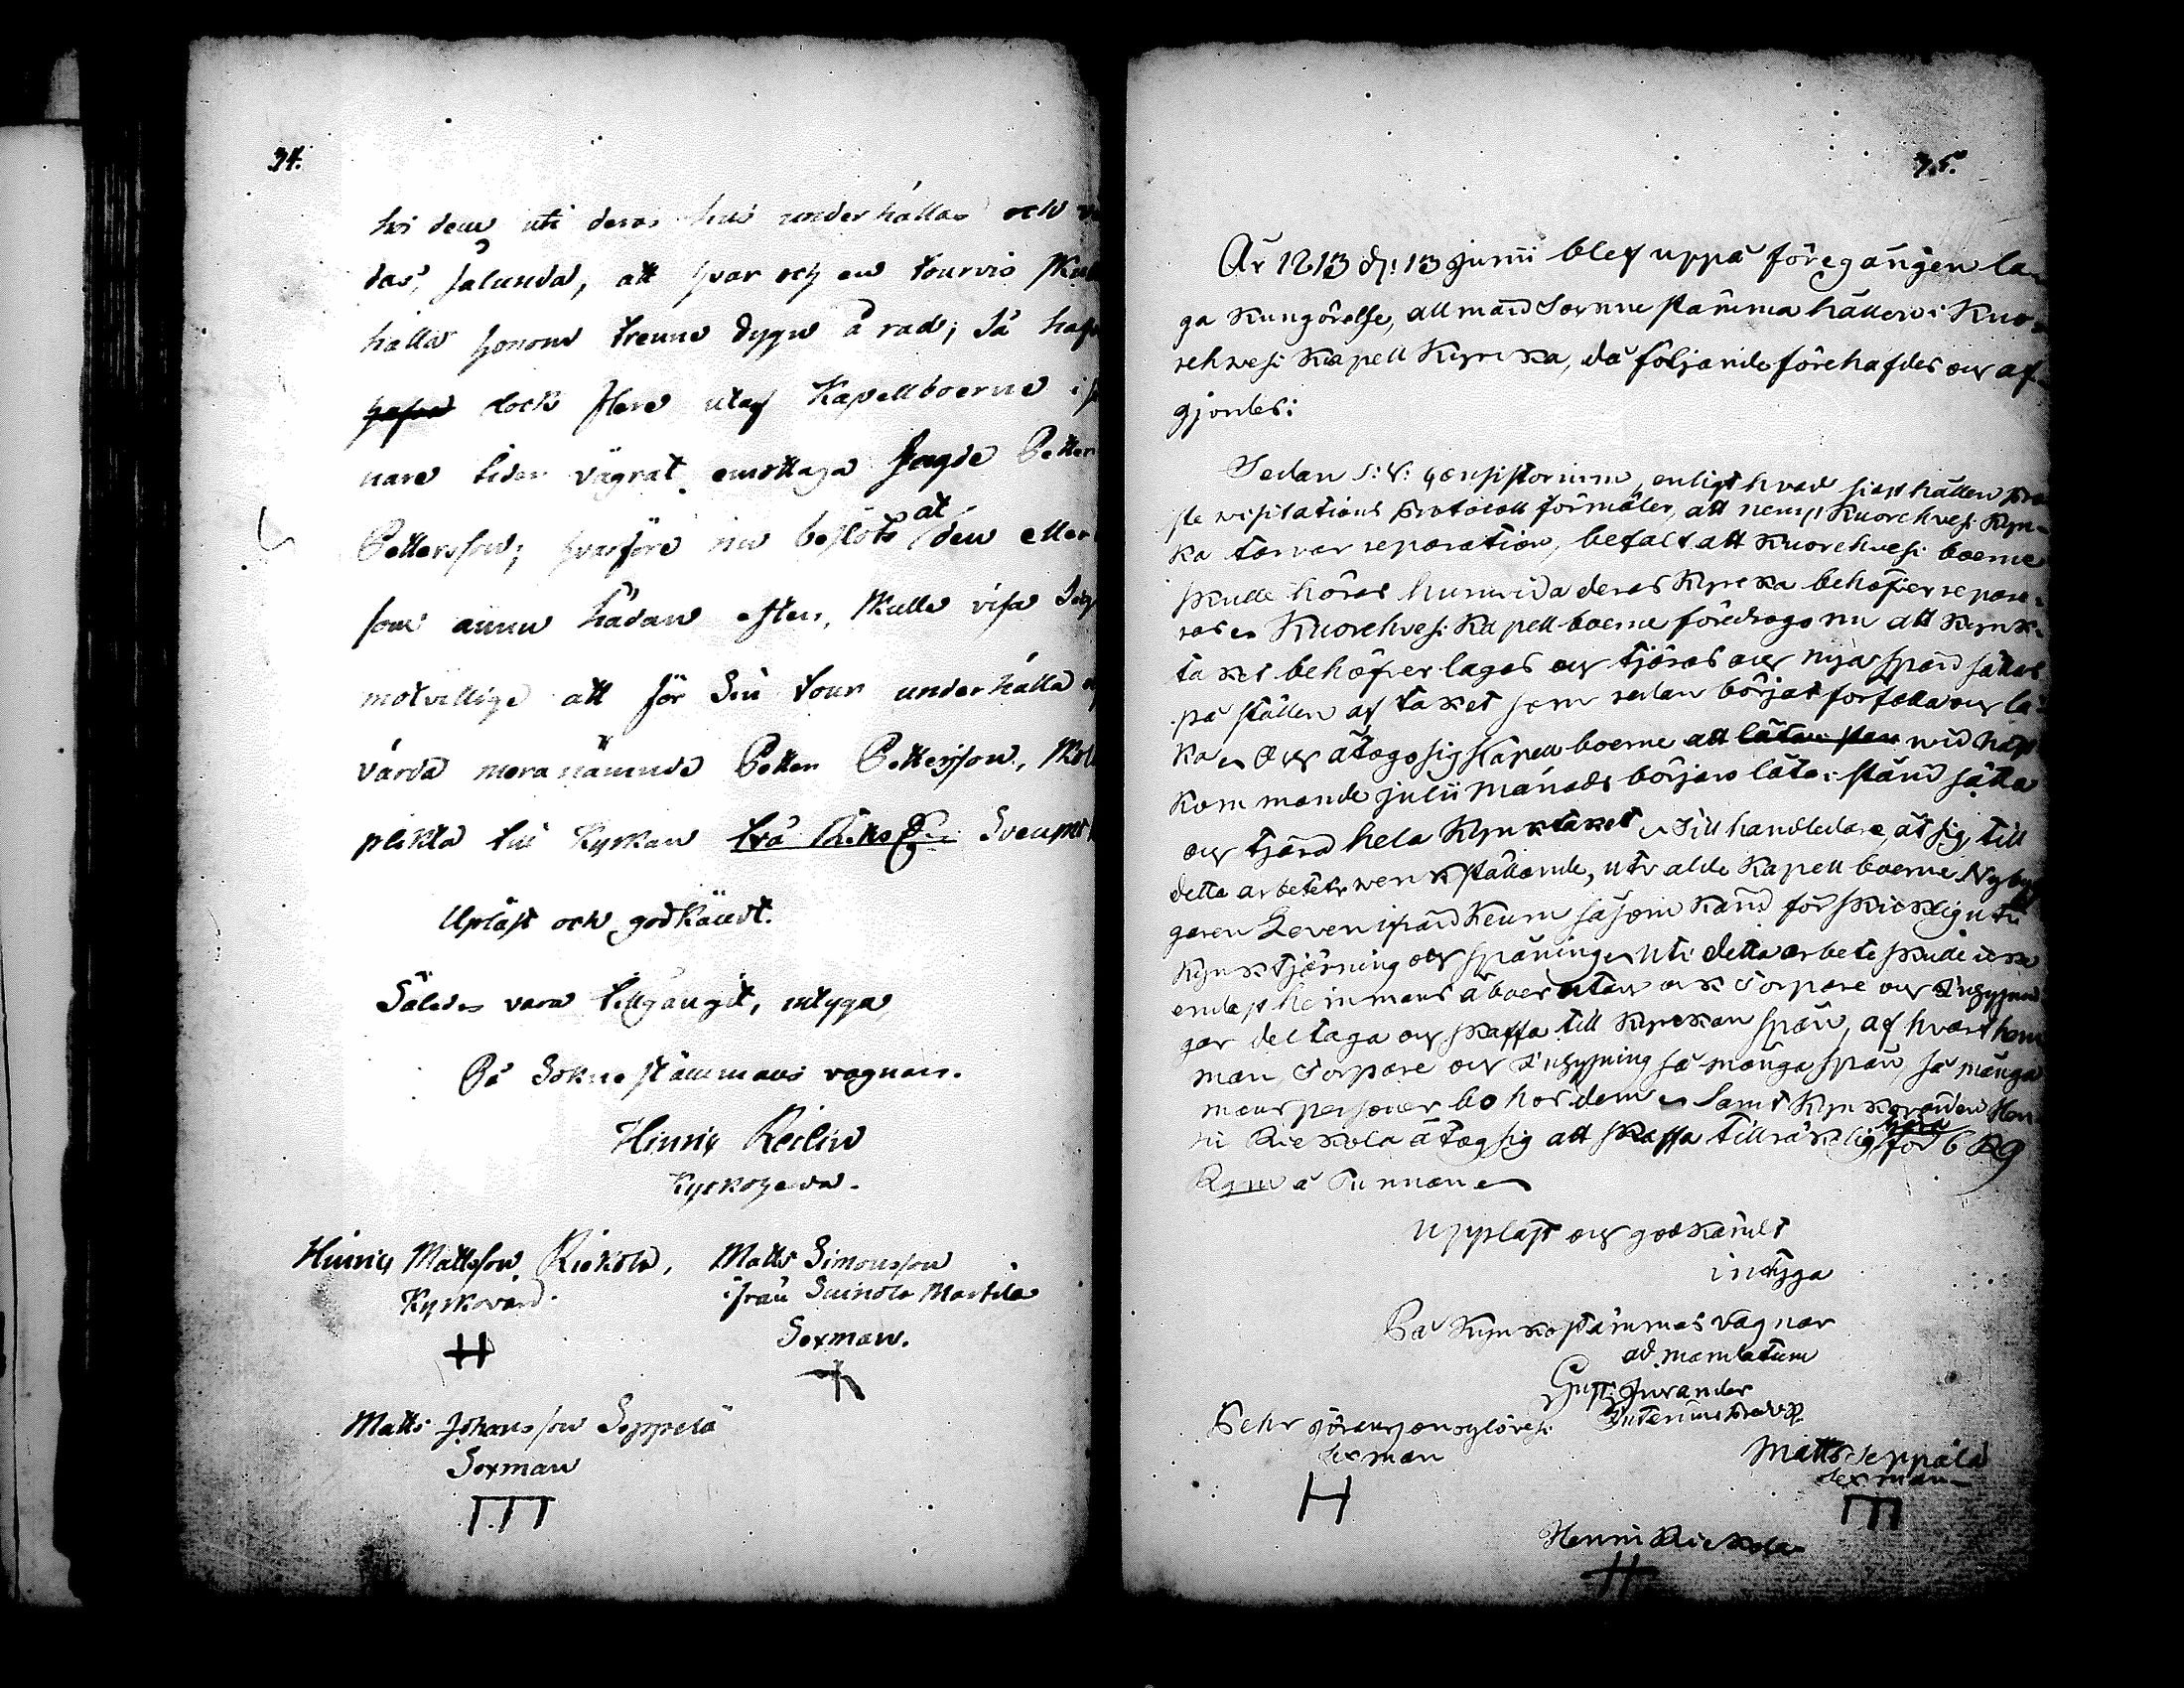 34.
hos dem uti deras hus underhållas och
das, sålunda, att hvar och en tourvis skul
hålla honom trenne dygn å rad; så haf
hafva dock flere utaf Kapellboerne i s
nare tider vägrat emottaga sagde Petter
Pettersson; hvarföre nu beslöts at den eller
som ännu hädan efter, skulle visa sig
motvillige att för sin tour underhålla o
vårda meranämnde Petter Pettersson, skol
plikta till Kyrkan två Riks Svenskt
Upläst och godkändt.
Således vara tillgångit, intyga
På Sokne stämmans vägnar.
Hinric Reilin
Kyrkoherde.
Hinric Mattsson Riekola, Matts Simonsson
Kyrkovärd. ifrån Suinola Martila
Sexman.
Matts Johansson Seppelä
Sexman
35.
År 1813 d: 13 Junii blef uppå föregången la-
ga Kungörelse, allmän Sockne stämma hållen i Kuo-
rehvesi Kapell Kyrcka, då följande förehafdes och af-
gjordes:
Sedan S: V: Consistorium, enligt hvad sist hållen Pro-
ste visitations Protocoll förmäler, att neml Kuorehvesi Kyr-
ka tarvar reparation, befalt att Kuorehvesi boerne
skulle höras huruvida deras Kyrcka behöfver repare-
ras Kuorehvesi Kapell boerne föredrogo nu att Kyrk-
taket behöfver lagas och tjäras och nya spån sättas
på ställen af taket som redan börjat förfalla och lä-
ka Och åtogo sig Kapell boerne att låta i stån wid näst
kommande Julii månads början låta i stånd sätta
och tjära hela Kyrktaket Till handledare åt sig, till
detta arbetets werkställande, utvalde Kapell boerne Nybyg
garen Keven ifrån Keuru såsom känd för skicklig uti
Kyrktjärning och spåning Uti detta arbete skulle icke
endast heimmans åboer utan ock Torpare och Inhysnin
gar deltaga och skaffa till Kyrckan spån, af hvart hem
man, Torpare och Inhysning så många spån, så många
mans personer bo hos dem Samt Kyrkovärden Hen
ric Riekola åtog sig att skaffa tillräcklig tjära för 6 R
Rgsm à Tunnan
Upplåst och godkändt
intyga
På Kyrkostämmas vägnar
ad mandatum
Gust: Jurander
Interims Pred.
Sexman
Matts Seppälä
Sexman
Henric Riekola